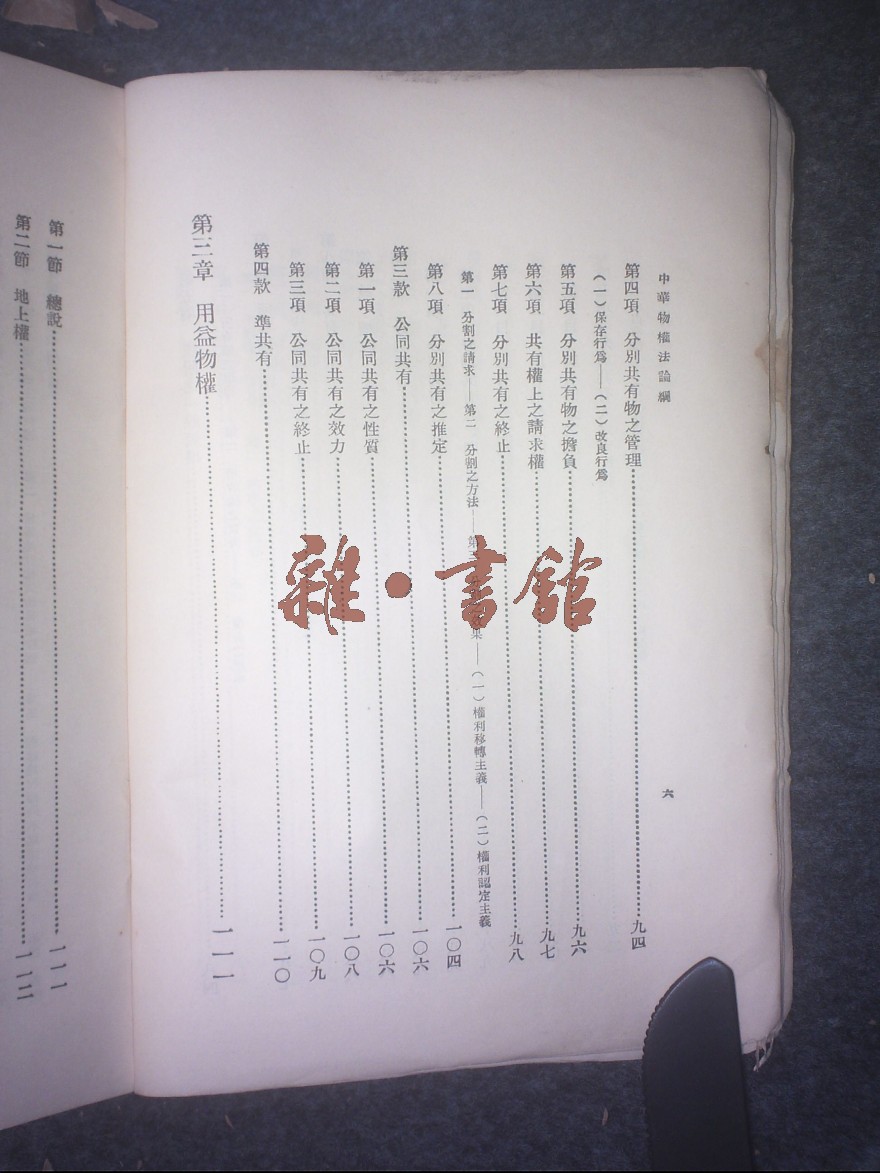 中華物權法論綱
六
第四項 分別共有物之管理……九四
(一)保存行爲——(二)改良行爲
第五項 分別共有物之擔負……九六
第六項 共有權上之請求權……九七
第七項 分別共有之終止……九八
第一 分割之請求——第二 分割之方法——第三 果——(一)權利移轉主義——(二)權利認定主義
第八項 分別共有之推定……一〇四
第三款 公同共有……一〇六
第一項 公同共有之性質……一〇六
第二項 公同共有之效力……一〇八
第三項 公同共有之終止……一〇九
第四款 準共有……一一〇
第三章 用益物權……一一一
第一節 總說……一一一
第二節 地上權……一一二
雜·書館